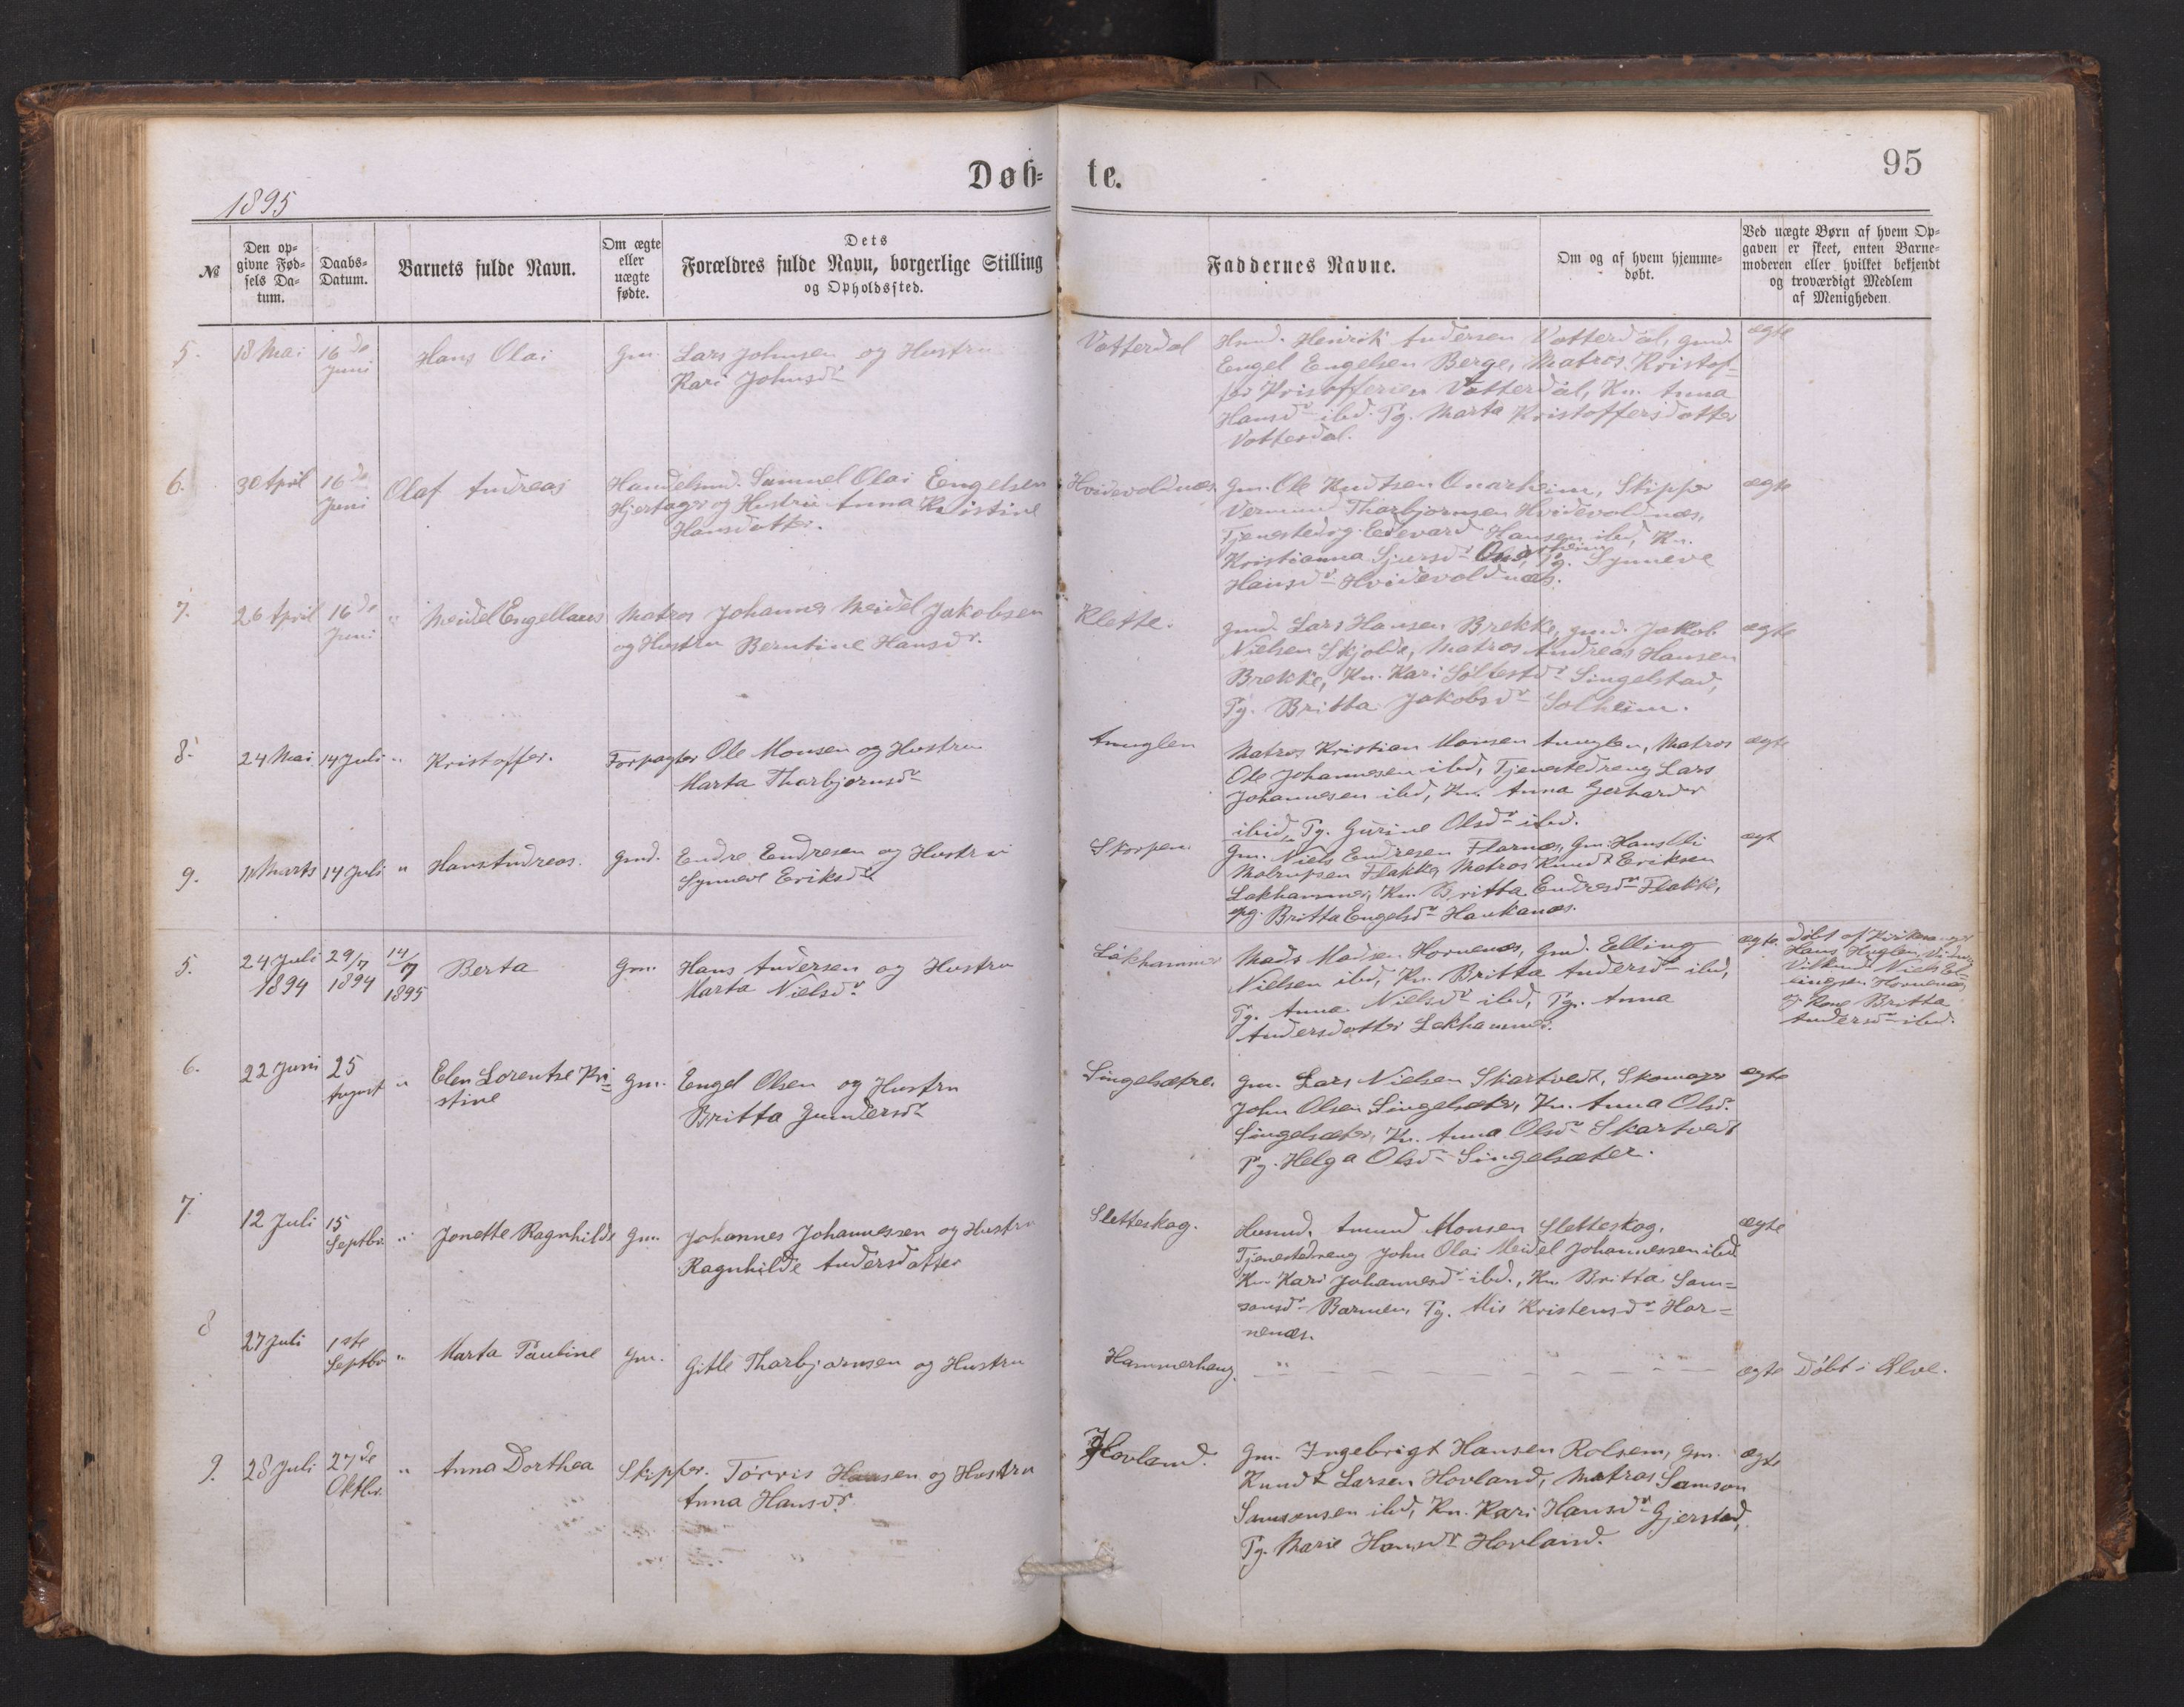 Døb-
te.
95
1895
№
Den op-
givne Fød-
sels Da-
tum.
Daabs-
Datum.
Barnets fulde Navn.
Om ægte
eller
uægte
fødte.
Dets
Forældres fulde Navn, borgerlige Stilling
og Opholdssted.
Faddernes Navne.
Om og af hvem hjemme-
døbt.
Ved uægte Børn af hvem Op-
gaven er skeet, enten Barne-
moderen eller hvilket bekjendt
og troværdigt Medlem
af Menigheden.
5. 18 Mai 16de Juni Hans Olai Gm. Lars Johnsen og Hustru
Kari Johnsdr
Votterdal
Husmd. Henrik Andersen Votterdal, gmd.
Engel Engelsen Berge, Matros Kristof-
fer Kristoffersen Votterdal, Kn. Anna
Hansdr ibd. Pg. Marta Kristoffersdatter
Votterdal.
ægte
6. 30 April 16de Juni Olaf Andreas Handelsmd. Samuel Olai Engelsen
Hjertager og Hustru Anna Kristine
Hansdatter.
Hvidevoldnæs
Gm. Ole Knutsen Onarheim, Skipper
Vermund Tharbjørnsen Hvidevoldnæs,
Edevard Hansen ibd, Kn.
Kristianna Sjursdr Onarheim, Pg. Synneve
Hansdr Hvidevoldnæs.
ægte
7. 26 April 16de Juni " Meidel Engellaus Matros Johannes Meidel Jakobsen
og Hustru Berntine Hansdr.
Klette.
gmd. Lars Hansen Brekke, gmd. Jakob
Nielsen Skjolde, Matros Andreas Hansen
Brekke, Kn. Kari Singelstad,
Pg. Britta Jakobsdr Solheim.
ægte
8. 24 Mai 14 Juli " Kristoffer. Forpagter Ole Monsen og Hustru
Marta Tharbjørnsdr
Anuglen
Matros Kristian Hansen Anuglen, Matros
Ole Johannesen ibd, Tjenestedreng Lars
Johannesen ibd, Kn. Anna Gerhardsdr
ibid, Pg. Gurine Olsdr ibd.
ægte
9. 11 Marts 14 Juli " Hans Andreas. Gmd. Endre Endresen og Hustru
Synneve Eriksdr
Skorpen.
Gm. Niels Endresen Flornes, Gm. Hans
Flakke, Matros Knudt Eriksen
Løkhammer, Kn. Britta Endresdr Flakke,
Pg. Britta Engelsdr Haukanæs.
ægt
5. 24 Juli 1894 29/7 1894 14/7 1895 Berta Gm. Hans Andersen og Hustru
Marta Nielsdr.
Løkhammer
Mads Madsen Hornenæs, Gmd. Elling
Nielsen ibd, Kn. Britta Andersdr ibd,
Pg. Anna Nielsdr ibd, Pg. Anna
Andersdatter Løkhammer.
ægte. Døbt af Kirkesanger
Hans Huglen
Niels El-
lingsen Hornenæs,
og Kone Britta
Andersdr ibd.
6. 22 Juni 25 August " Elen Lorentse Kri-
stine
Gm. Engel Olsen og Hustru
Britta Gundersdr
Singelsæter.
Gm. Lars Nielsen Skartvedt, Skomager
John Olsen Singelsæter, Kn. Anna Olsdr.
Singelsæter, Kn. Anna Olsdr Skartvedt
Pg. Helga Olsdr Singelsæter.
ægte
7. 12 Juli 15 Septbr. " Jonette Ragnhilde Gm. Johannes Johannessen og Hustru
Ragnhilde Andersdatter
Sletteskog.
Husmd. Amund Monsen Sletteskog.
Tjenestedreng John Olai Meidel Johannessen ibd
Kn. Kari Johannesdr ibd., Kn. Britta Sam-
sonsdr Barmen, Pg. Mis Kristensdr Hor-
nenæs.
ægte
8 27 Juli 1ste Septbr " Marta Pauline Gm. Gitle Tharbjørnsen og Hustru
Hammerhaug. " ægte Døbt i Ølve.
9. 28 Juli 27de Oktbr. " Anna Dorthea Skipper. Tørris Hansen og Hustru
Anna Hansdr.
Hovland.
Gm. Ingebrigt Hansen Rolsem, Gm.
Knudt Larsen Hovland, Matros Samson
Samsonsen ibd, Kn. Kari Hansdr Gjerstad,
Pg. Marie Hansdr Hovland.
ægte